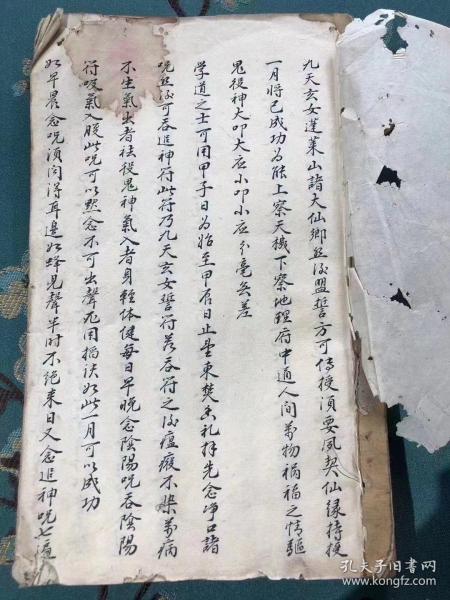 九天玄女蓬萊山諸大仙鄉然後盟誓方可傳授須要夙契仙緣持授
一月将已成功為能上察天機下察地理府中通人间萬物禍福之情驅
鬼役神大叩大应小叩小应分毫無差
学道之士可用甲子日為始至甲辰日止望東焚香礼拜先念净口諸
咒然後可吞追神符此符乃九天玄女誓符若吞符之後瘟疫不染萬病
不生氣出者祛役鬼神氣入者身輕体健每日早晚念陰陽咒吞陰陽
符吸氣入服此咒可以默念不可出聲凡用搯訣如此一月可以成功
如早晨念咒須向得耳邊如蜂兒聲半时不絕来日又念追神咒七遍
孔夫子旧书网
www.kongfz.com